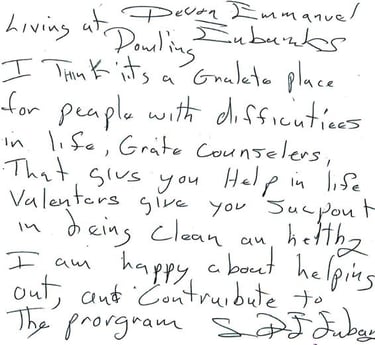 Living at Devon Emmanuel
Dowling Eubanks
I Think its a Gralete place
for peaple with difficuties
in life, Grate Counselers,
That givs you Help in life
Valenters give you Sucpount
in being Clean an helthy
I am happy about helping
out, and Contruibute to
The prorgram